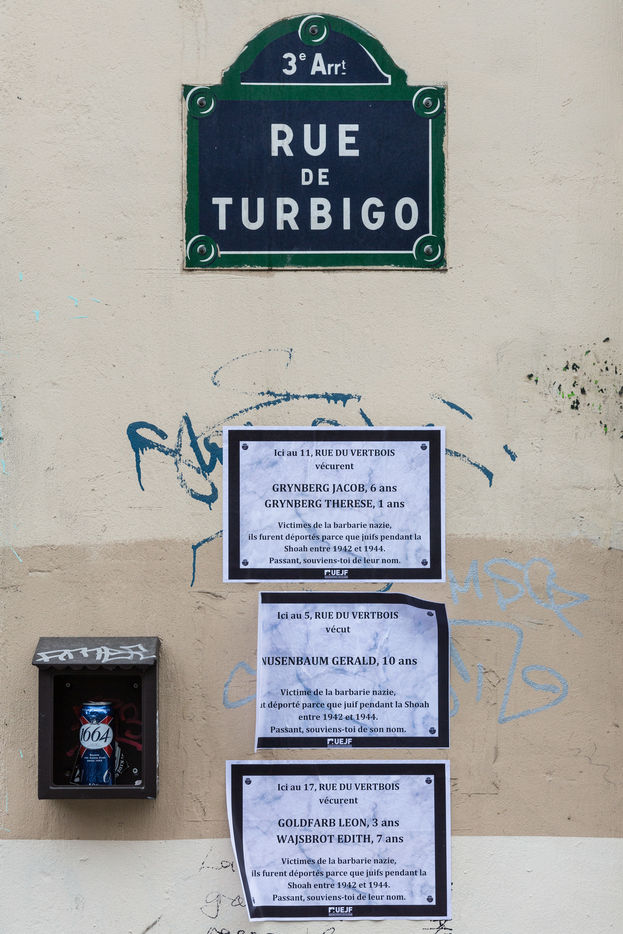 3e Arrt
RUE
DE
TURBIGO
Ici au 11, RUE DU VERTBOIS
vécurent
GRYNBERG JACOB, 6 ans
GRYNBERG THERESE, 1 ans
Victimes de la barbarie nazie,
ils furent déportés parce que juifs pendant la
Shoah entre 1942 et 1944.
Passant, souviens-toi de leur nom.
UEJF
Ici au 5, RUE DU VERTBOIS
vécut
NUSENBAUM GERALD, 10 ans
Victime de la barbarie nazie,
ut déporté parce que juif pendant la Shoah
entre 1942 et 1944.
Passant, souviens-toi de son nom.
UEJF
1664
Ici au 17, RUE DU VERTBOIS
vécurent
GOLDFARB LEON, 3 ans
WAJSBROT EDITH, 7 ans
Victimes de la barbarie nazie,
ils furent déportés parce que juifs pendant la
Shoah entre 1942 et 1944.
Passant, souviens-toi de leur nom.
UEJF